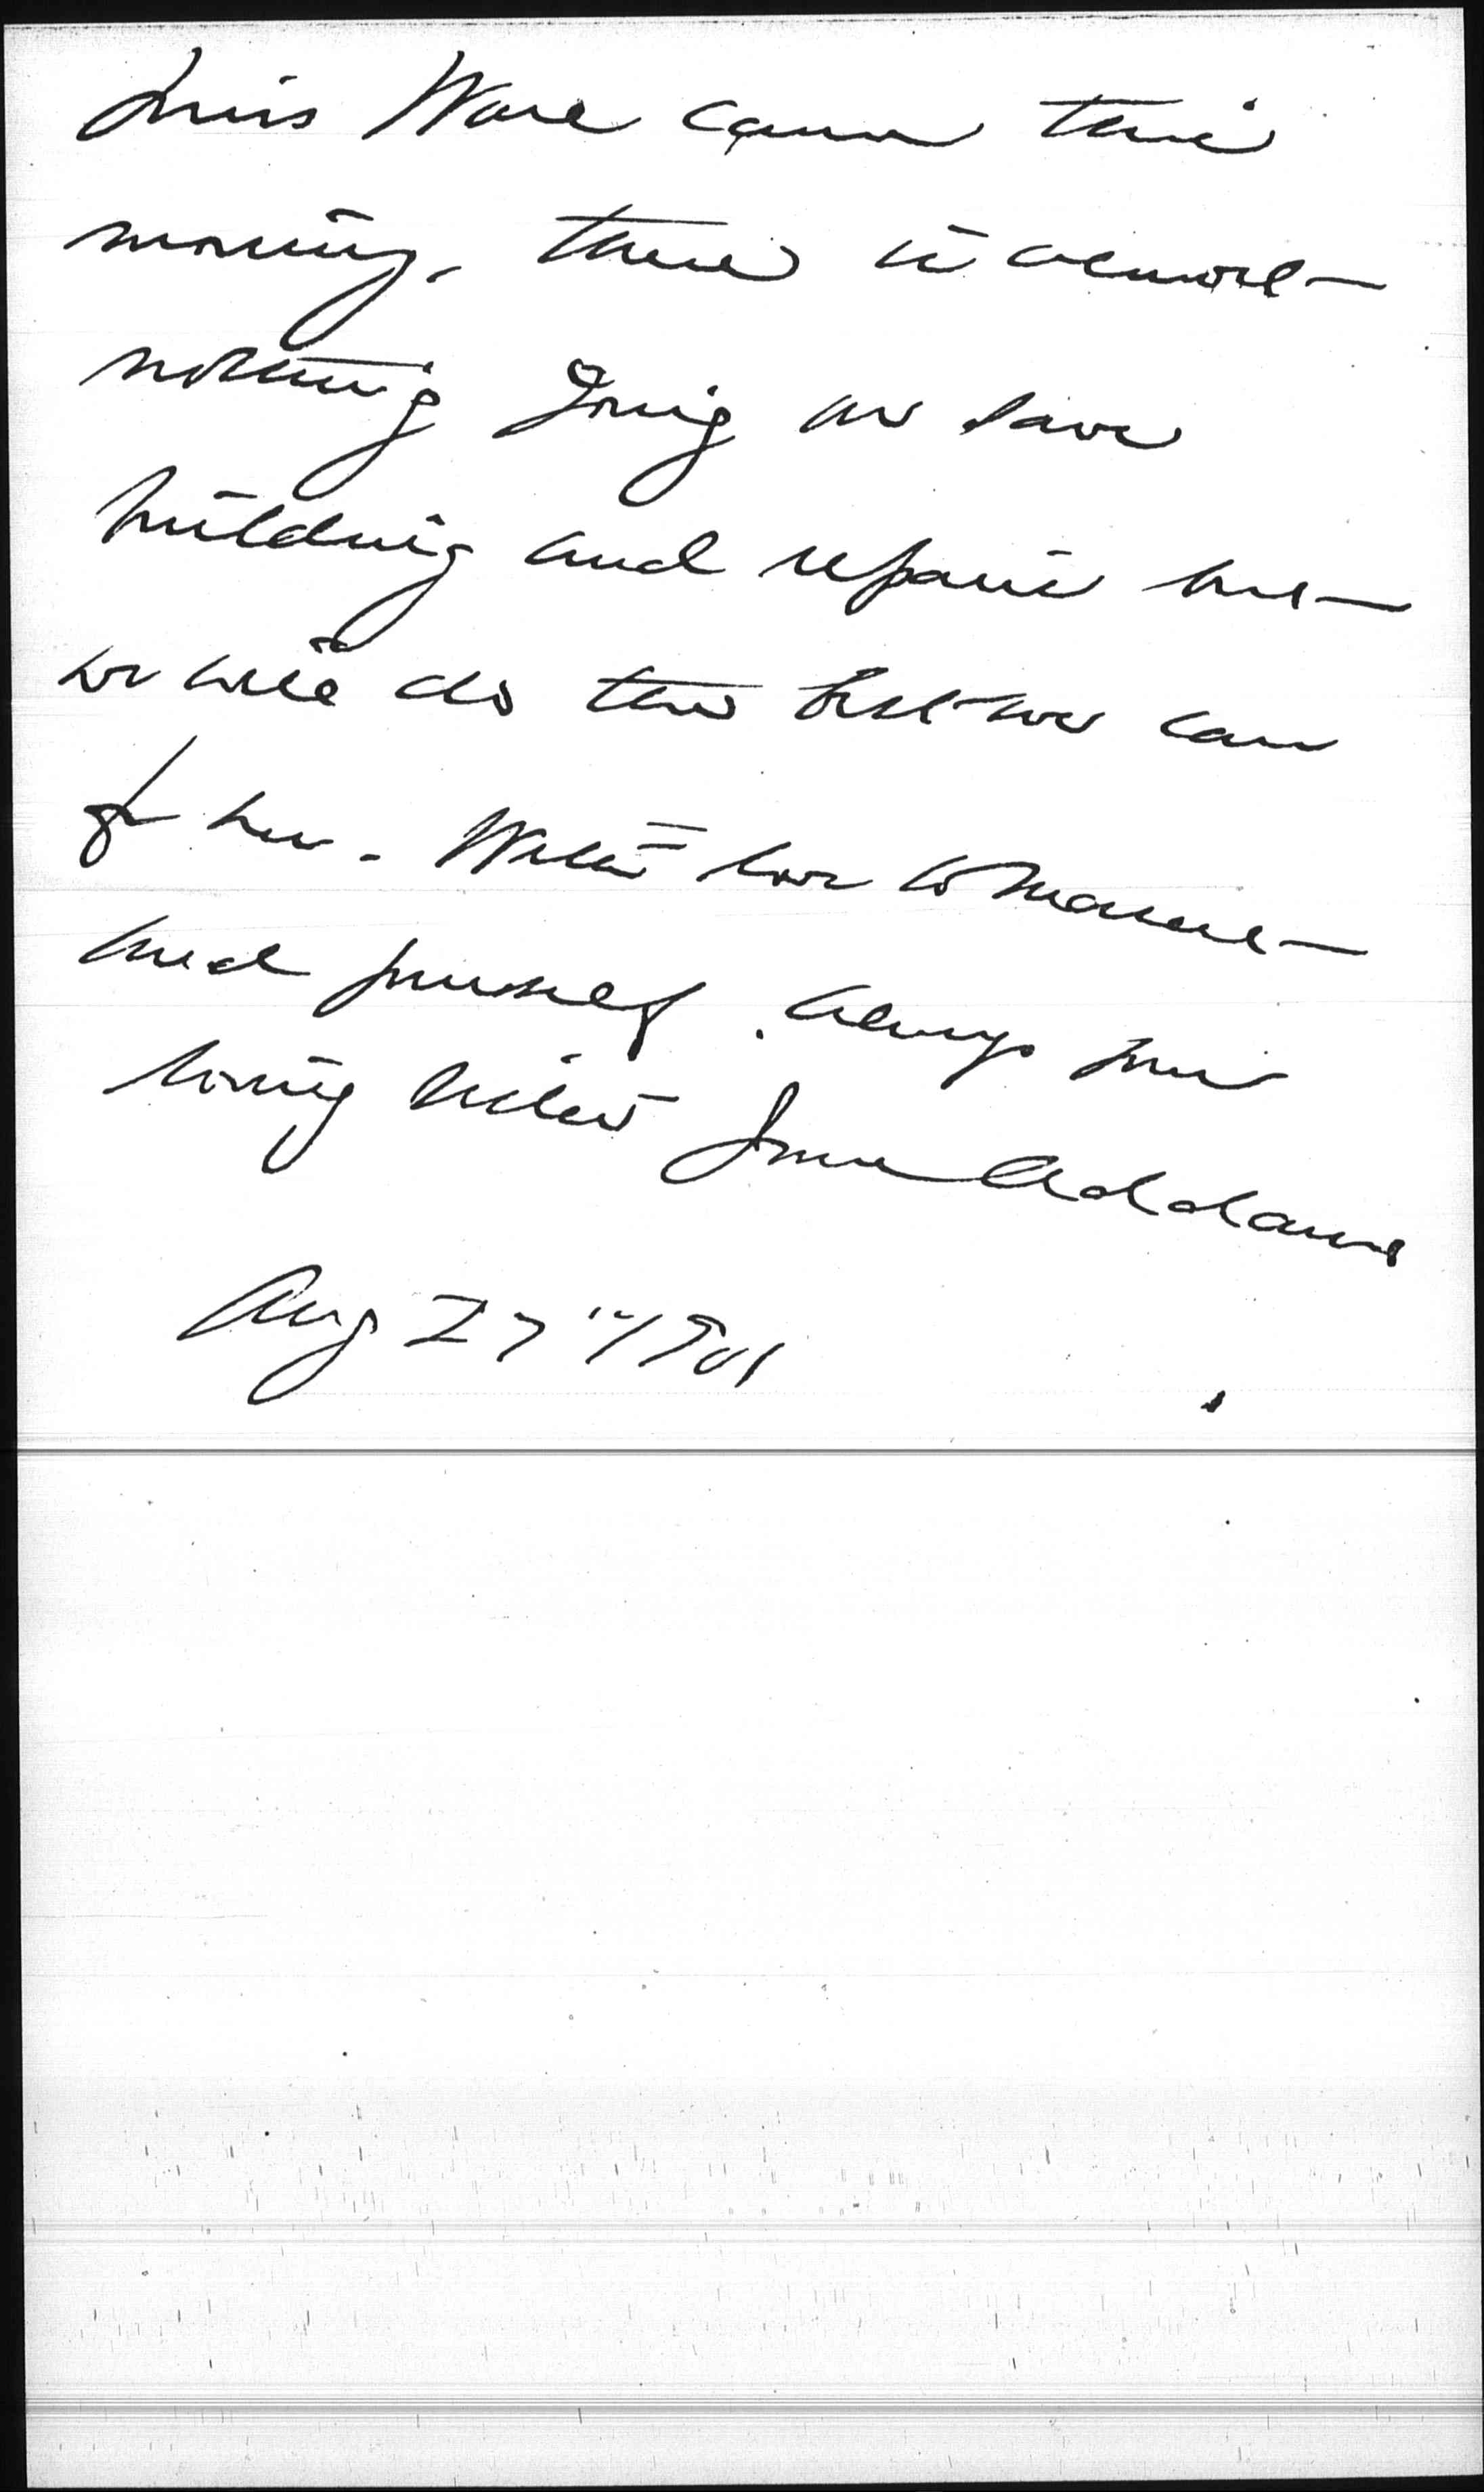 Miss Ware came this
morning. There is almost
nothing doing as save
building and repairs but
we will do the best we can
for her. With love to Marcet
and yourself. Always your
loving sister Jane Addams
Aug 27" 1901